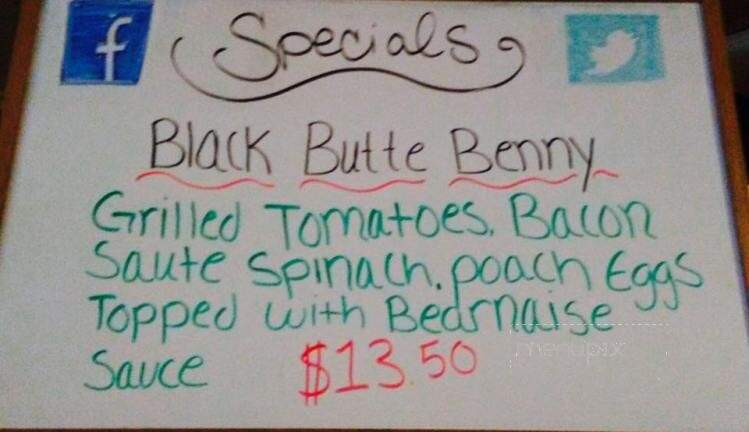 f Specials
Black Butte Benny
Grilled Tomatoes. Bacon
Saute Spinach. poach Eggs
Topped with Bearnaise
Sauce $13.50
menupix